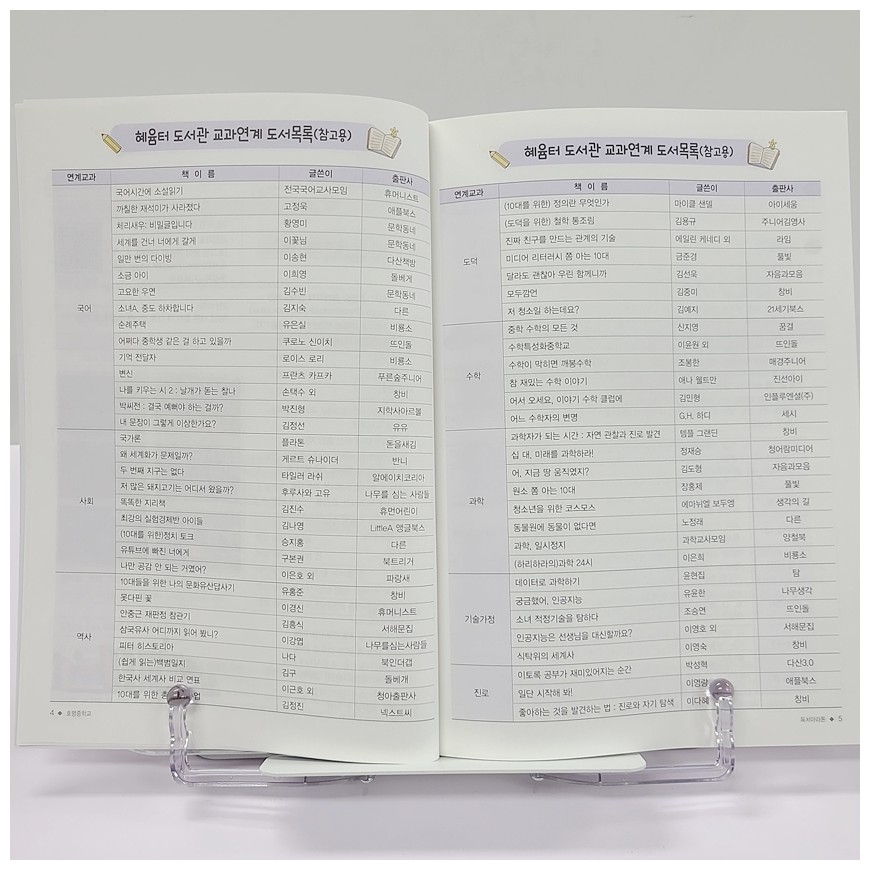 혜윰터 도서관 교과연계 도서목록(참고용)
연계교과 책 이 름 글쓴이 출판사
국어
국어시간에 소설읽기 전국국어교사모임 휴머니스트
까칠한 재석이가 사라졌다 고정욱 애플북스
체리새우: 비밀글입니다 황영미 문학동네
세계를 건너 너에게 갈게 이꽃님 문학동네
일만 번의 다이빙 이송현 다산책방
소금 아이 이희영 돌베게
고요한 우연 김수빈 문학동네
소녀A, 중도 하차합니다 김지숙 다른
순례주택 유은실 비룡소
어쩌다 중학생 같은 걸 하고 있을까 쿠로노 신이치 뜨인돌
기억 전달자 로이스 로리 비룡소
변신 프란츠 카프카 푸른숲주니어
나를 키우는 시 2 : 날개가 돋는 찰나 손택수 외 창비
박씨전 : 결국 예뻐야 하는 걸까? 박진형 지학사아르볼
내 문장이 그렇게 이상한가요? 김정선 유유
사회
국가론 플라톤 돋을새김
왜 세계화가 문제일까? 게르트 슈나이더 반니
두 번째 지구는 없다 타일러 라쉬 알에이치코리아
저 많은 돼지고기는 어디서 왔을까? 후루사와 고유 나무를 심는 사람들
똑똑한 지리책 김진수 휴먼어린이
최강의 실험경제반 아이들 김나영 LittleA 앵글북스
(10대를 위한)정치 토크 송지홍 다른
유튜브에 빠진 너에게 구본권 북트리거
나만 공감 안 되는 거였어? 이은호 외 파랑새
역사
10대들을 위한 나의 문화유산답사기 유홍준 창비
못다핀 꽃 이경신 휴머니스트
안중근 재판정 참관기 김흥식 서해문집
삼국유사 어디까지 읽어 봤니? 이강엽 나무를심는사람들
피터 히스토리아 나다 북인더갭
(쉽게 읽는)백범일지 김구 돌베개
한국사 세계사 비교 연표 이근호 외 청아출판사
10대를 위한 업 김정진 넥스트씨
4 ◆ 호평중학교
혜윰터 도서관 교과연계 도서목록(참고용)
연계교과 책 이 름 글쓴이 출판사
도덕
(10대를 위한) 정의란 무엇인가 마이클 샌델 아이세움
(도덕을 위한) 철학 통조림 김용규 주니어김영사
진짜 친구를 만드는 관계의 기술 에일린 케네디 외 라임
미디어 리터러시 쫌 아는 10대 금준경 풀빛
달라도 괜찮아 우린 함께니까 김선욱 자음과모음
모두깜언 김중미 창비
저 청소일 하는데요? 김예지 21세기북스
수학
중학 수학의 모든 것 신지영 꿈결
수학특성화중학교 이윤원 외 뜨인돌
수학이 막히면 깨봉수학 조봉한 매경주니어
참 재밌는 수학 이야기 애나 웰트만 진선아이
어서 오세요, 이야기 수학 클럽에 김민형 인플루엔셜(주)
어느 수학자의 변명 G.H. 하디 세시
과학
과학자가 되는 시간 : 자연 관찰과 진로 발견 템플 그랜딘 창비
십 대, 미래를 과학하라! 정재승 청어람미디어
어, 지금 땅 움직였지? 김도형 자음과모음
원소 쫌 아는 10대 장홍제 풀빛
청소년을 위한 코스모스 에마뉘엘 보두엥 생각의 길
동물원에 동물이 없다면 노정래 다른
과학, 일시정지 과학교사모임 양철북
(하리하라의)과학 24시 이은희 비룡소
기술가정
데이터로 과학하기 윤현집 탐
궁금했어, 인공지능 유윤한 나무생각
소녀 적정기술을 탐하다 조승연 뜨인돌
인공지능은 선생님을 대신할까요? 이영호 외 서해문집
식탁위의 세계사 이영숙 창비
진로
이토록 공부가 재미있어지는 순간 박성혁 다산3.0
일단 시작해 봐! 애플북스
좋아하는 것을 발견하는 법 : 진로와 자기 탐색 이다혜 창비
독서마라톤 ◆ 5